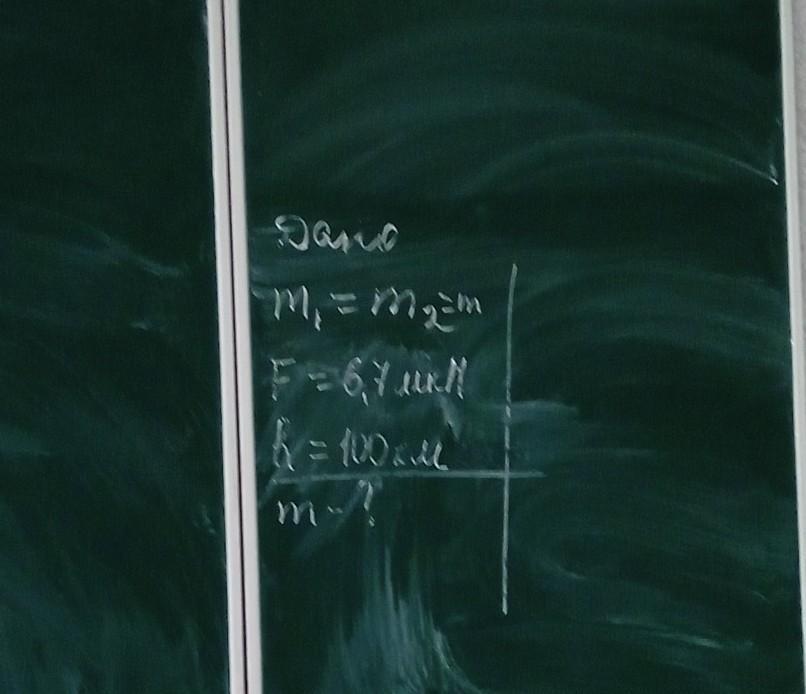 Дано
m₁ = m₂ = m
F = 6,7 мкН
R = 100 см
m - ?